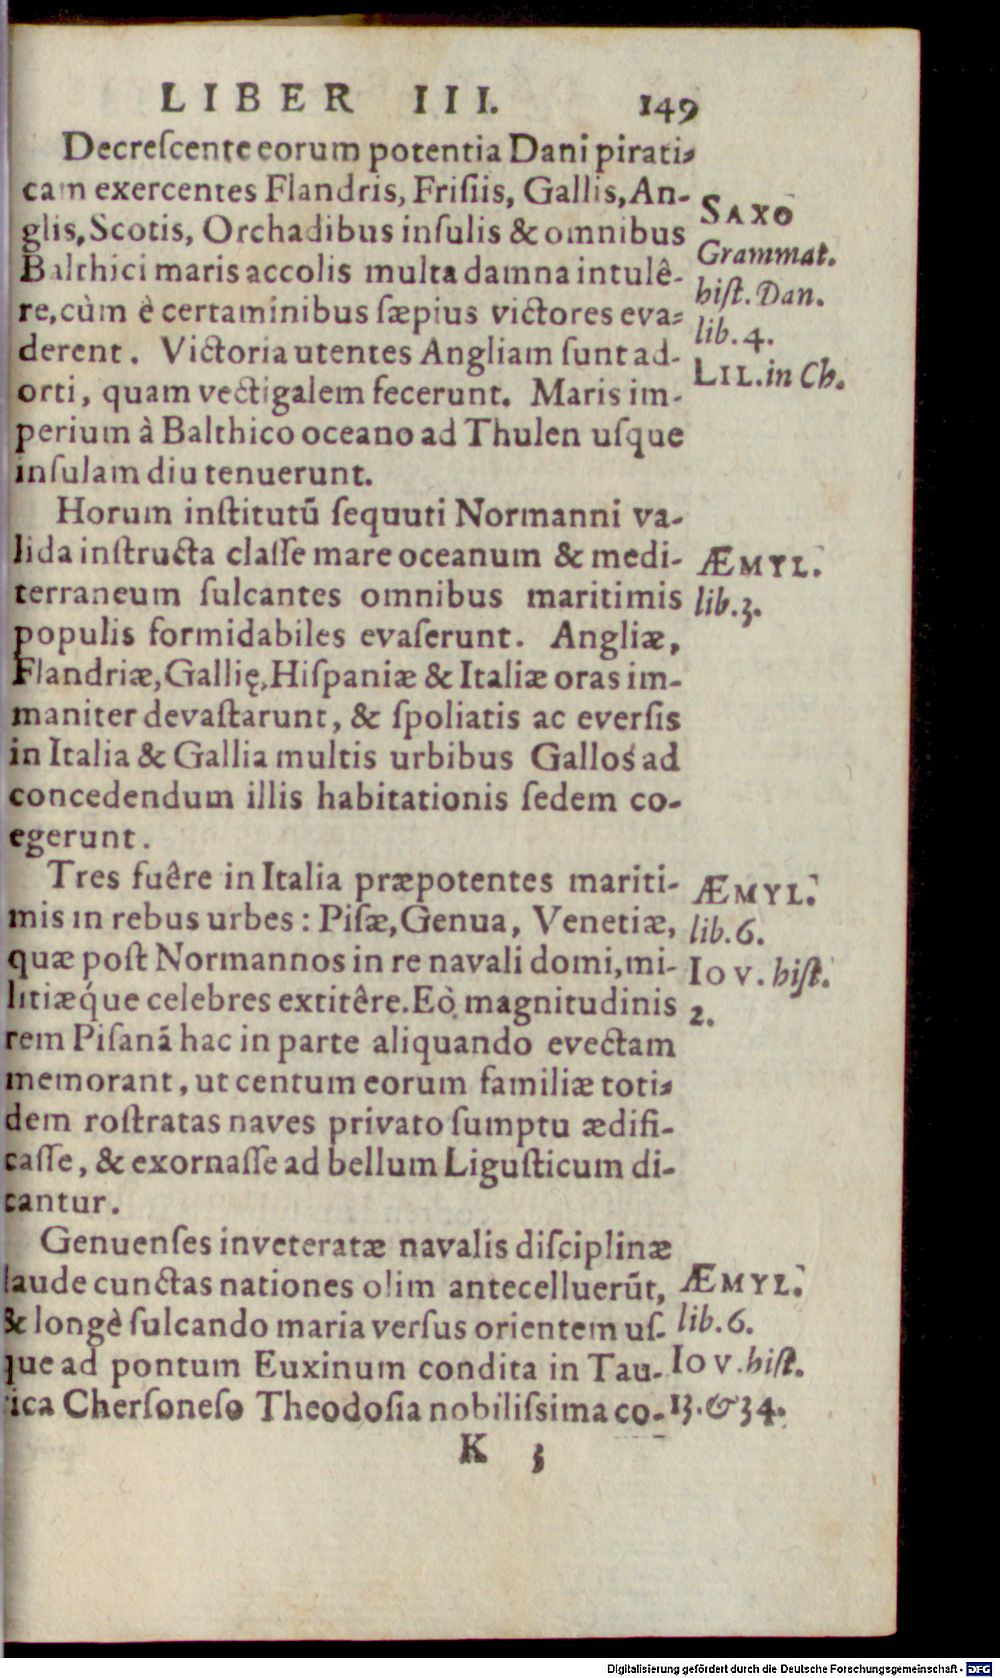 LIBER III. 149
Decreſcente eorum potentia Dani pirati-
cam exercentes Flandris, Friſiis, Gallis, An-
glis, Scotis, Orchadibus inſulis & omnibus
Balthici maris accolis multa damna intulê-
re, cùm è certaminibus ſæpius victores eva-
derent. Victoria utentes Angliam ſunt ad-
orti, quam vectigalem fecerunt. Maris im-
perium à Balthico oceano ad Thulen uſque
inſulam diu tenuerunt.
SAXO
Grammat.
hiſt. Dan.
lib. 4.
LIL. in Ch.
Horum inſtitutū ſequuti Normanni va-
lida inſtructa claſſe mare oceanum & medi-
terraneum ſulcantes omnibus maritimis
populis formidabiles evaſerunt. Angliæ,
Flandriæ, Gallię, Hiſpaniæ & Italiæ oras im-
maniter devaſtarunt, & ſpoliatis ac everſis
in Italia & Gallia multis urbibus Gallos ad
concedendum illis habitationis ſedem co-
egerunt.
ÆMYL.
lib. 3.
Tres fuêre in Italia præpotentes mariti-
mis in rebus urbes: Piſæ, Genua, Venetiæ,
quæ poſt Normannos in re navali domi, mi-
litiæq́ue celebres extitêre. Eò magnitudinis
rem Piſanā hac in parte aliquando evectam
memorant, ut centum eorum familiæ toti-
dem roſtratas naves privato ſumptu ædifi-
caſſe, & exornaſſe ad bellum Liguſticum di-
cantur.
ÆMYL.
lib. 6.
Iov. hiſt.
2.
Genuenſes inveteratæ navalis diſciplinæ
laude cunctas nationes olim antecelluerūt,
& longè ſulcando maria verſus orientem uſ-
que ad pontum Euxinum condita in Tau-
rica Cherſoneſo Theodoſia nobiliſsima co-
ÆMYL.
lib. 6.
Iov. hiſt.
13. & 34.
K 3
Digitalisierung gefördert durch die Deutsche Forschungsgemeinschaft - DFG